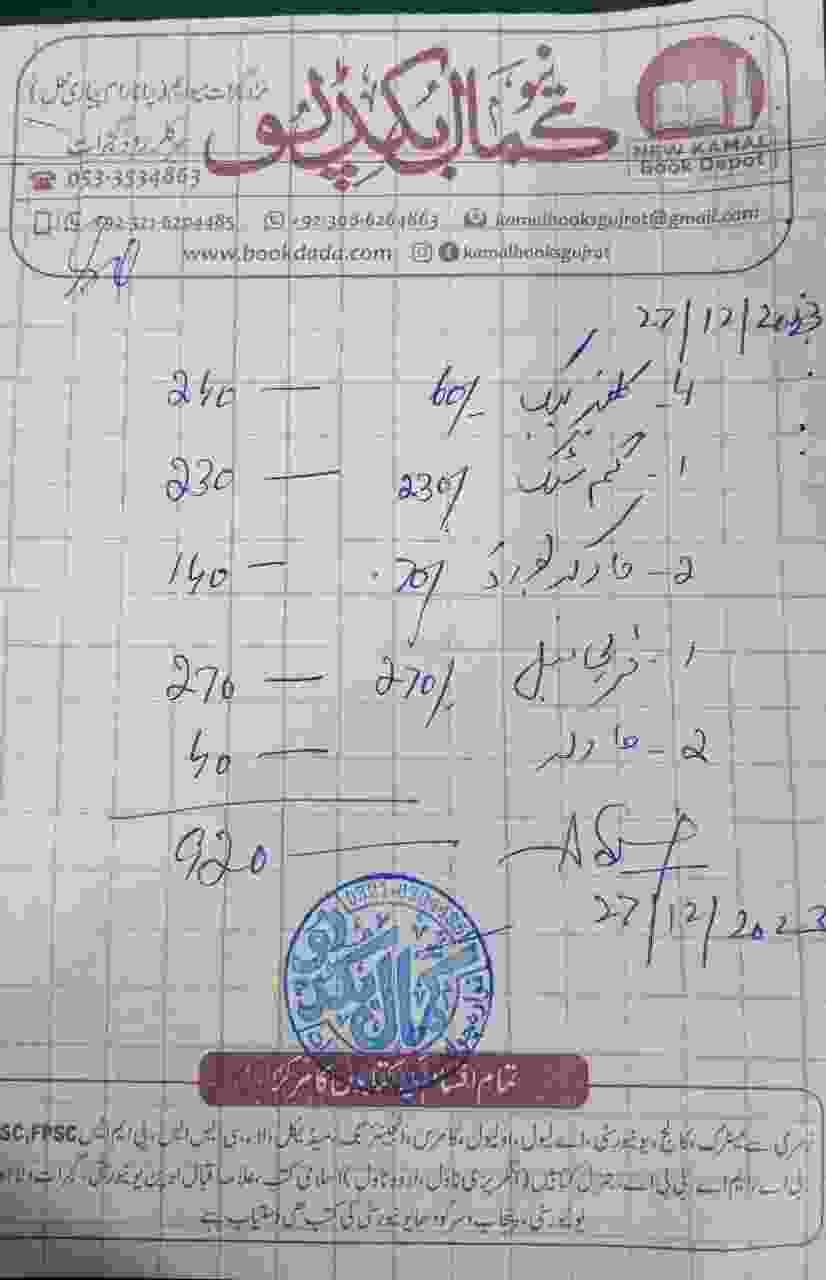 نیو
کمال بکڈپو
NEW KAMAL
Book Depot
053-3534863
+92-321-6204485 +92-306-6264863 kamalbooksgujrat@gmail.com
www.bookdada.com kamalbooksgujrat
27/12/2023
4 - 60/- — 240
1 - گم سٹک 230/- — 230
2 - مارکر بورڈ 70/- — 140
1 - 270/- — 270
2 - مارکر — 40
920
27/12/2023
کمال بکڈپو
تمام اقسام کی کتابوں کا مرکز
نرسری سے میٹرک، کالج، یونیورسٹی، اے لیول، او لیول، کامرس، انجینئرنگ، میڈیکل، لاء، سی ایس ایس، پی ایم ایس SC,FPSC
بی اے، ایم اے، بی بی اے، جنرل کتابیں (انگریزی ناول، اردو ناول) اسلامی کتب، علامہ اقبال اوپن یونیورسٹی، گجرات
یونیورسٹی، پنجاب و سرگودھا یونیورسٹی کی کتب بھی دستیاب ہے